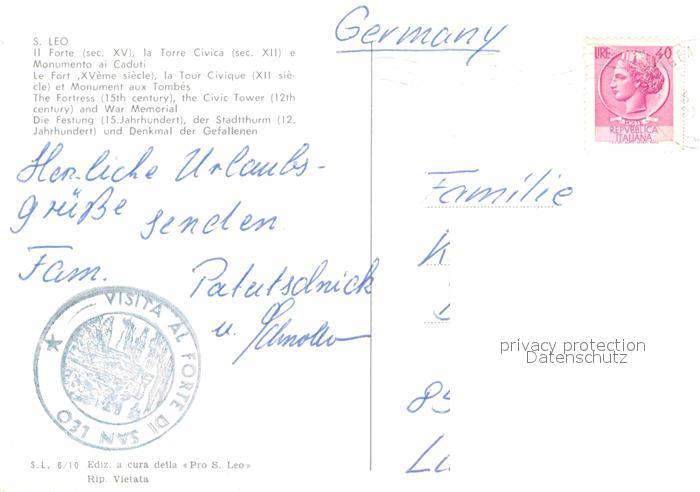 S. LEO
Il Forte (sec. XV), la Torre Civica (sec. XII) e
Monumento ai Caduti
Le Fort ,XVème siècle), la Tour Civique (XII siè-
cle) et Monument aux Tombés
The Fortress (15th century), the Civic Tower (12th
century) and War Memorial
Die Festung (15.Jahrhundert), der Stadtthurm (12.
Jahrhundert) und Denkmal der Gefallenen
Germany
LIRE 40
POSTE
REPVBBLICA
ITALIANA
Herzliche Urlaubs-
grüße senden
Fam. Patutschnick
u.
Familie
K
85
Lu
VISITA AL FORTE DI SAN LEO
privacy protection
Datenschutz
S.L. 6/10 Ediz. a cura della «Pro S. Leo»
Rip. Vietata